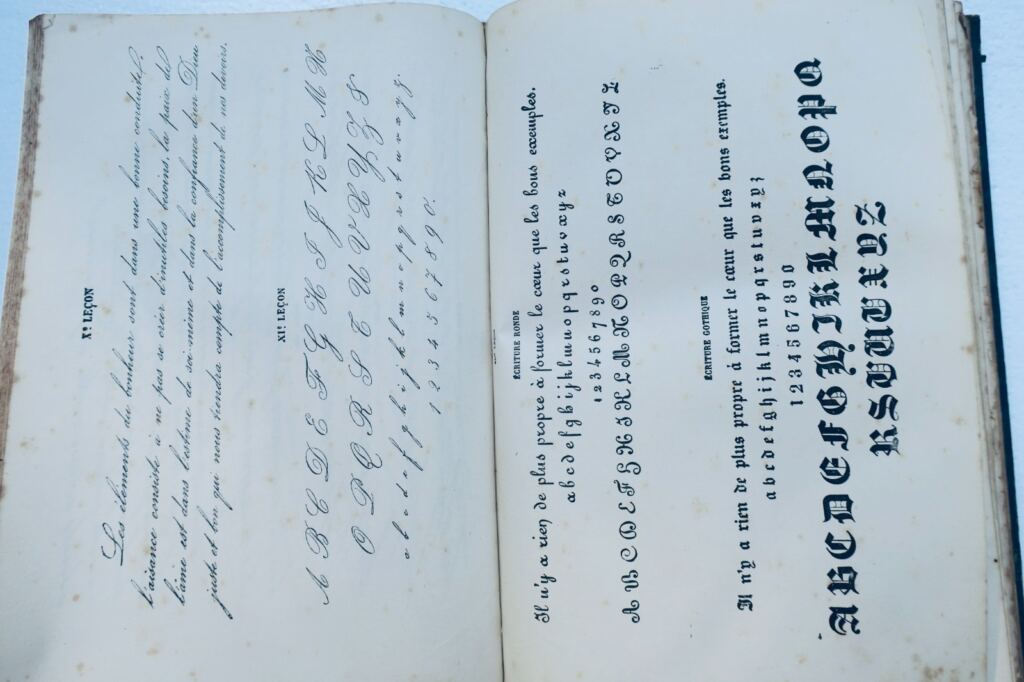 Xe LEÇON
Les éléments du bonheur sont dans une bonne conduite,
l'aisance consiste à ne pas se créer d'inutiles besoins, la paix de
l'âme est dans l'estime de soi-même et dans la confiance d'un Dieu
juste et bon qui nous tiendra compte de l'accomplissement de nos devoirs.
XIe LEÇON
A B C D E F G H I J K L M N
O P Q R S T U V X Y Z S
a b c d e f g h i j k l m n o p q r s t u v x y z.
1 2 3 4 5 6 7 8 9 0.
ÉCRITURE RONDE
Il n'y a rien de plus propre à former le cœur que les bons exemples.
a b c d e f g h i j k l m n o p q r s t u v x y z
1 2 3 4 5 6 7 8 9 0
A B C D E F G H I K L M N O P Q R S T U V X Y Z
ÉCRITURE GOTHIQUE
Il n'y a rien de plus propre à former le cœur que les bons exemples.
a b c d e f g h i j k l m n o p q r s t u v x y z
1 2 3 4 5 6 7 8 9 0
A B C D E F G H I J K L M N O P Q
R S T U V X Y Z